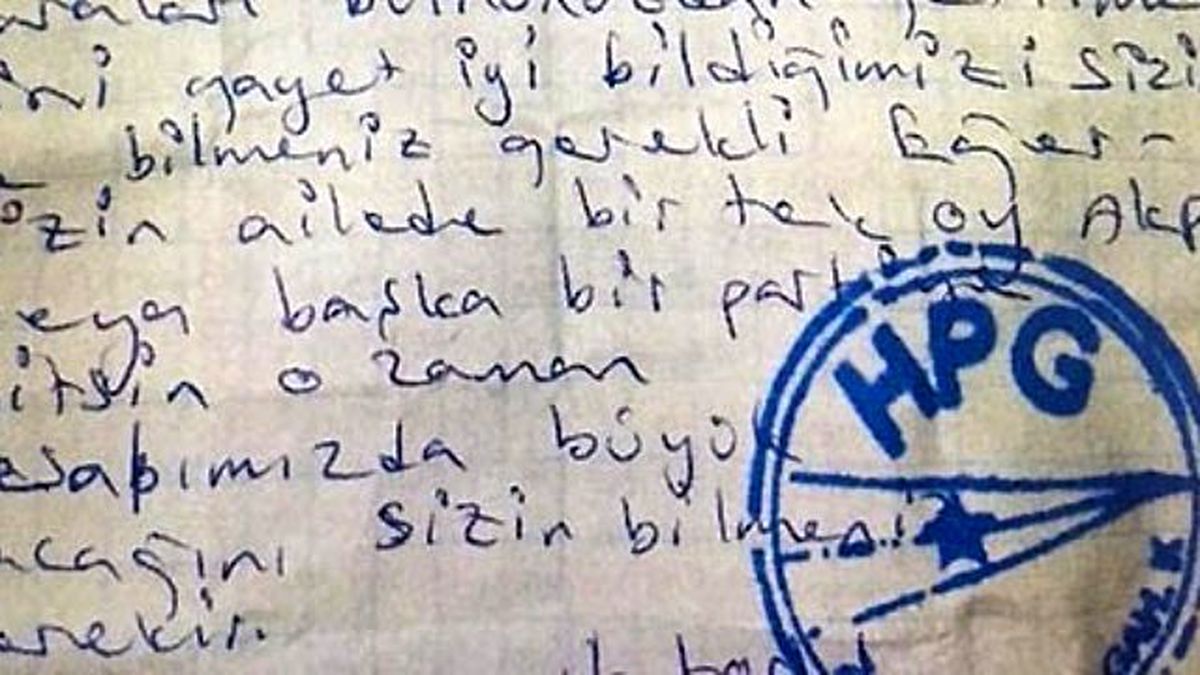 ini gayet iyi bildiğimizi sizi
bilmeniz gerekli Eğer-
sizin ailede bir tek oy Akp
veya başka bir partiye
gitsin o zaman
hesapımızda büyük
sizin bilmeniz
acağını
gerekir.
HPG
GAH. K